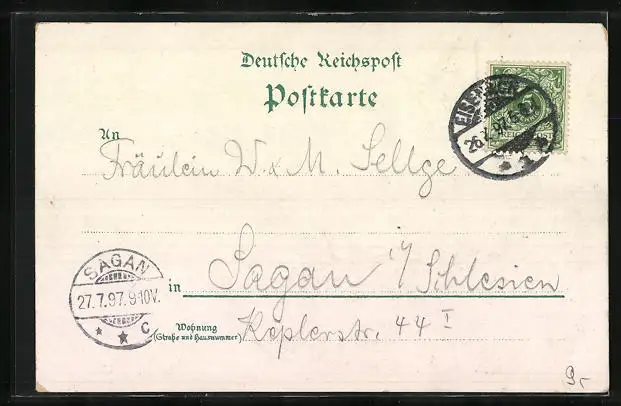 Deutsche Reichspost
Postkarte
An
Fräulein W. & M. Sellge
in Sagan i/Schlesien
Wohnung
(Straße und Hausnummer)
Keplerstr. 44 I
EISENACH
26.7.97.
SAGAN
27.7.97.9-10V.
* * C
9,-